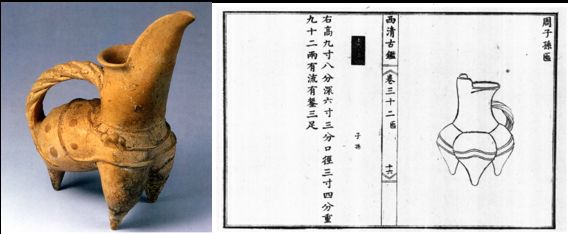 周子孫匜
西清古鑑 卷三十二 匜 十六
子孫
右高九寸八分深六寸三分口徑三寸四分重
九十二兩有流有鋬三足